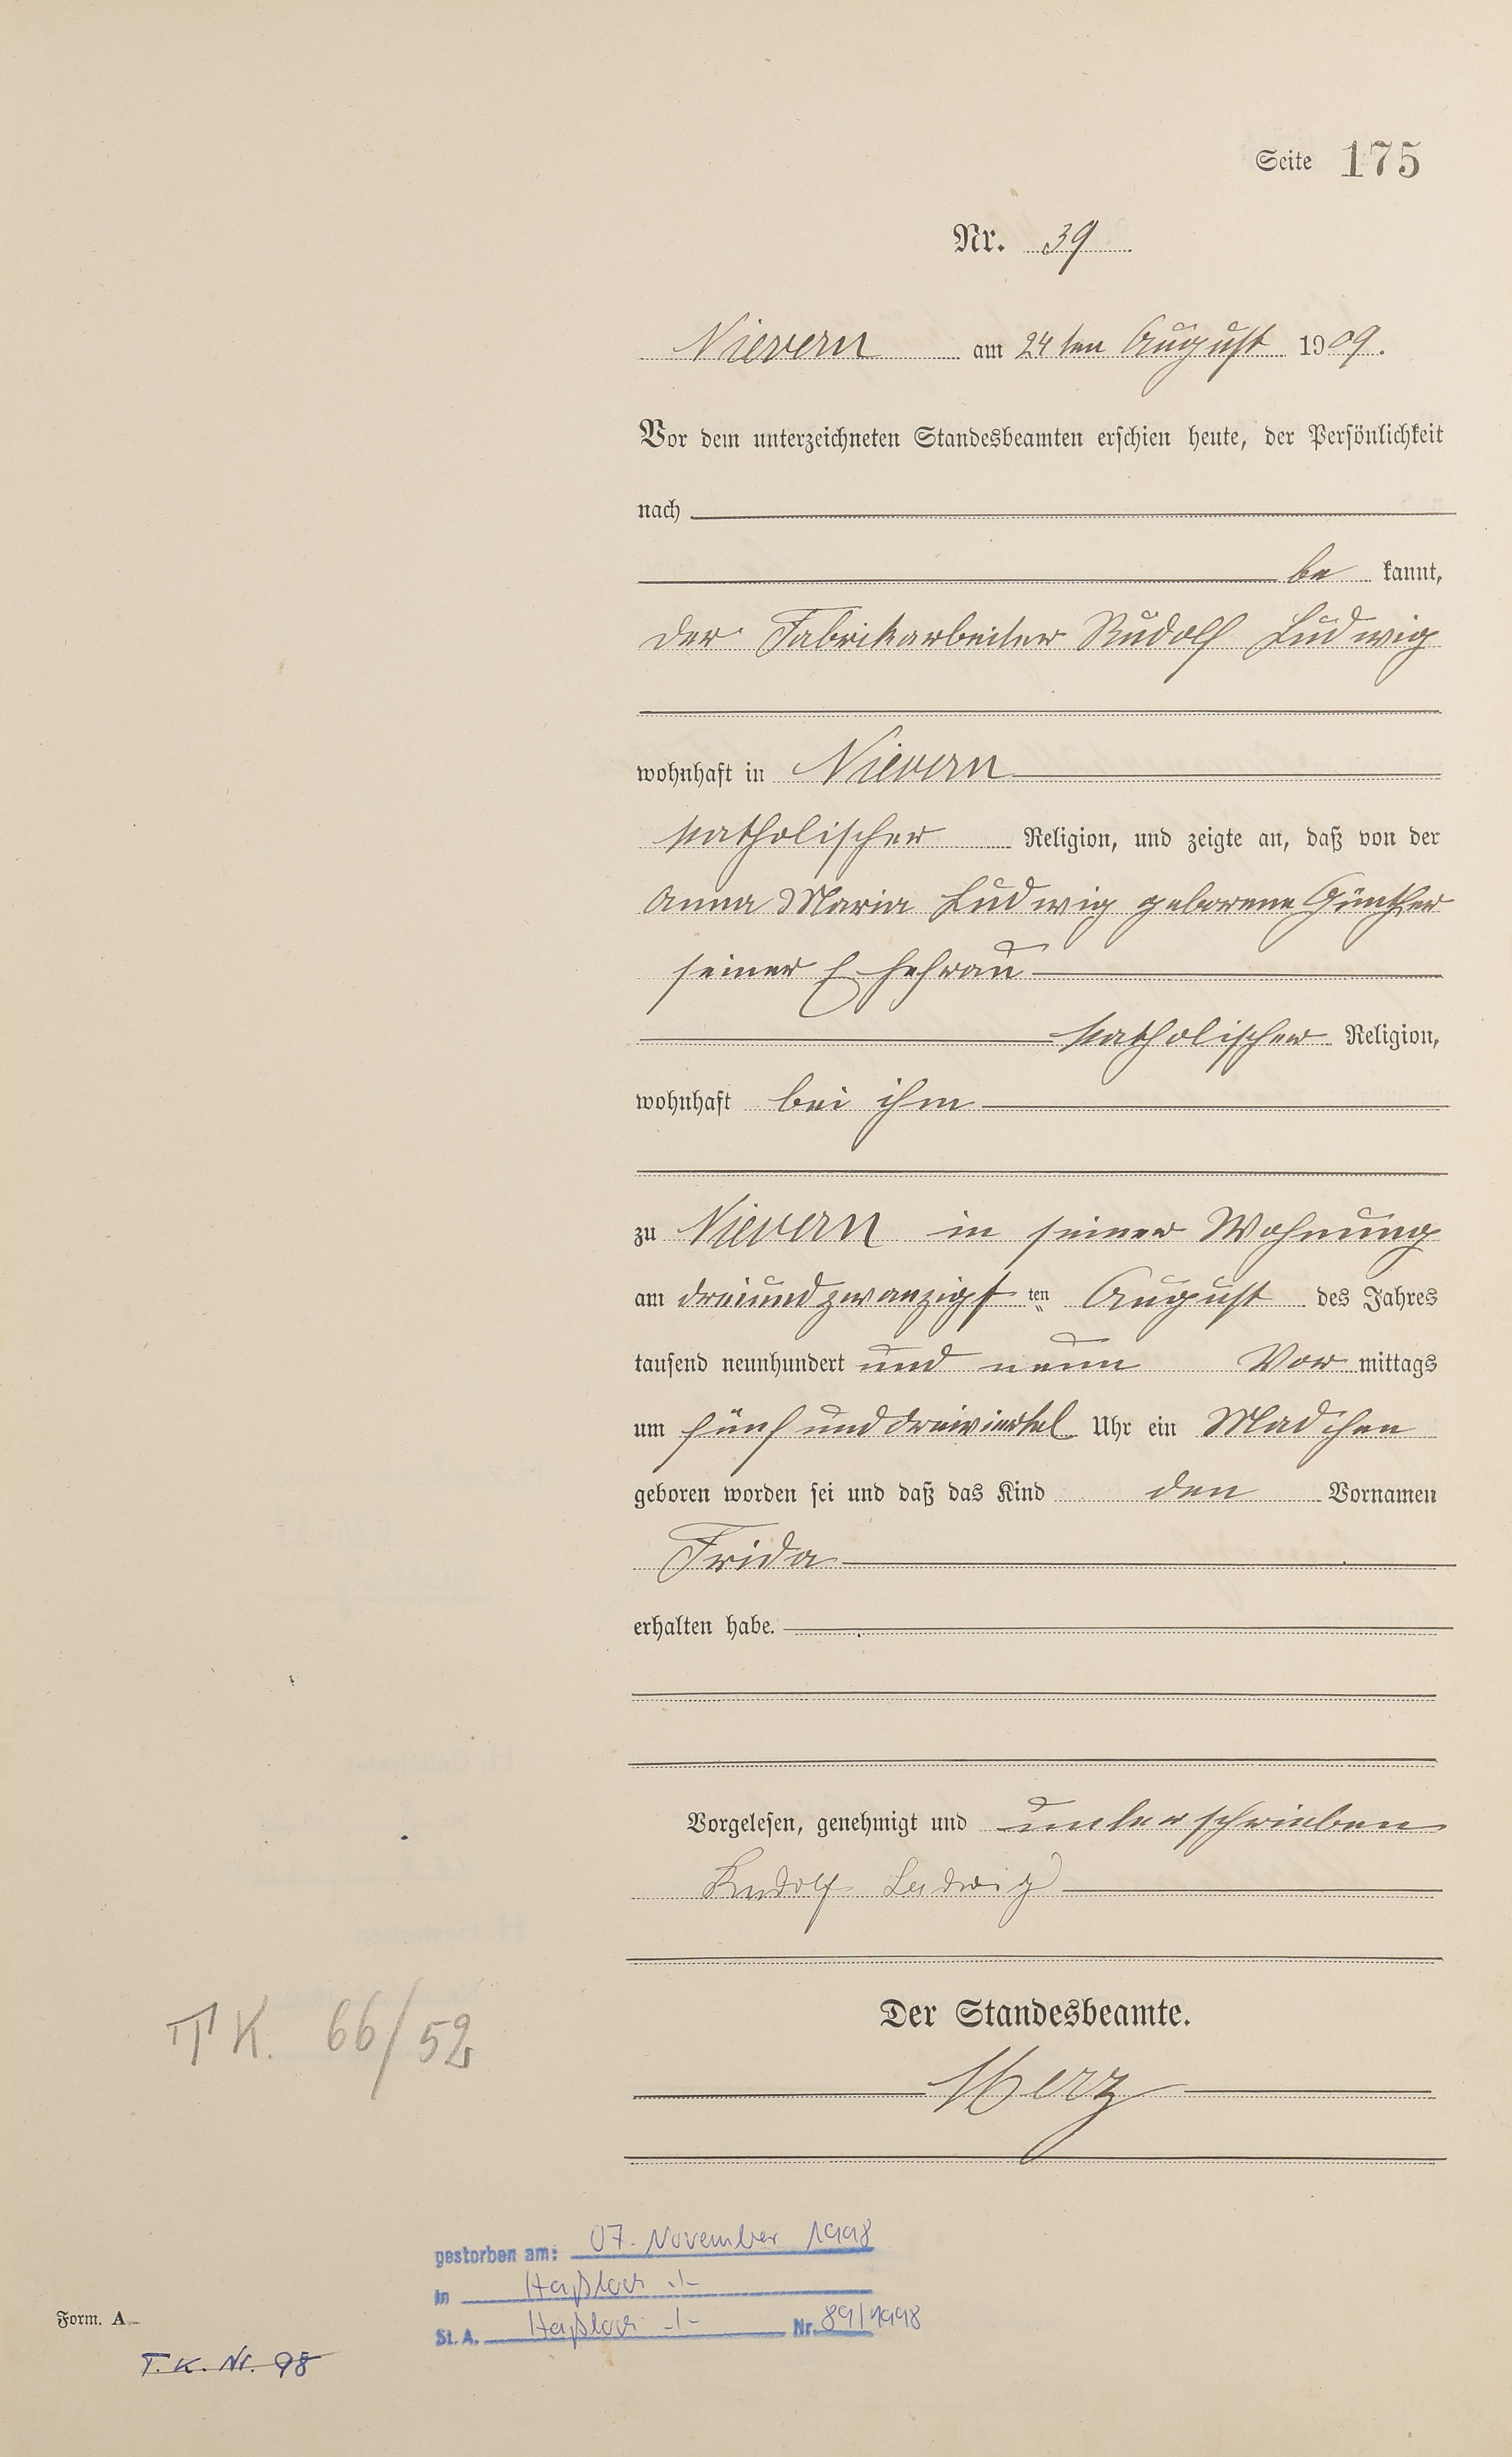 Seite 175
Nr. 39
Nievern am 24ten August 1909.
Vor dem unterzeichneten Standesbeamten erschien heute, der Persönlichkeit
nach
be kannt,
der Fabrikarbeiter Rudolf Ludwig
wohnhaft in Nievern
katholischer Religion, und zeigte an, daß von der
Anna Maria Ludwig geborene Günther
seiner Ehefrau
katholischer Religion,
wohnhaft bei ihm
zu Nievern in seiner Wohnung
am dreiundzwanzigsten August des Jahres
tausend neunhundert und neun Vor mittags
um fünf und dreiviertel Uhr ein Mädchen
geboren worden sei und daß das Kind den Vornamen
Frida
erhalten habe.
Vorgelesen, genehmigt und unterschrieben
Rudolf Ludwig
Der Standesbeamte.
Merz
T K. 66/52
gestorben am: 07. November 1998
in Haßloch -/-
St. A. Haßloch -/- Nr. 89/1998
Form. A
T. K. Nr. 98